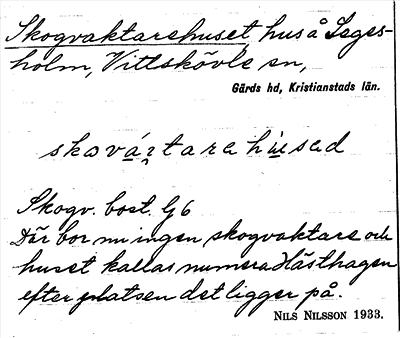 Skogvaktarehuset, hus å Seges-
holm, Vittskövle sn,
Gärds hd, Kristianstads län.
skavártarehúsed
Skogv. bost. G 6
Där bor nu ingen skogvaktare och
huset kallas numera Hästhagen
efter platsen det ligger på.
NILS NILSSON 1933.